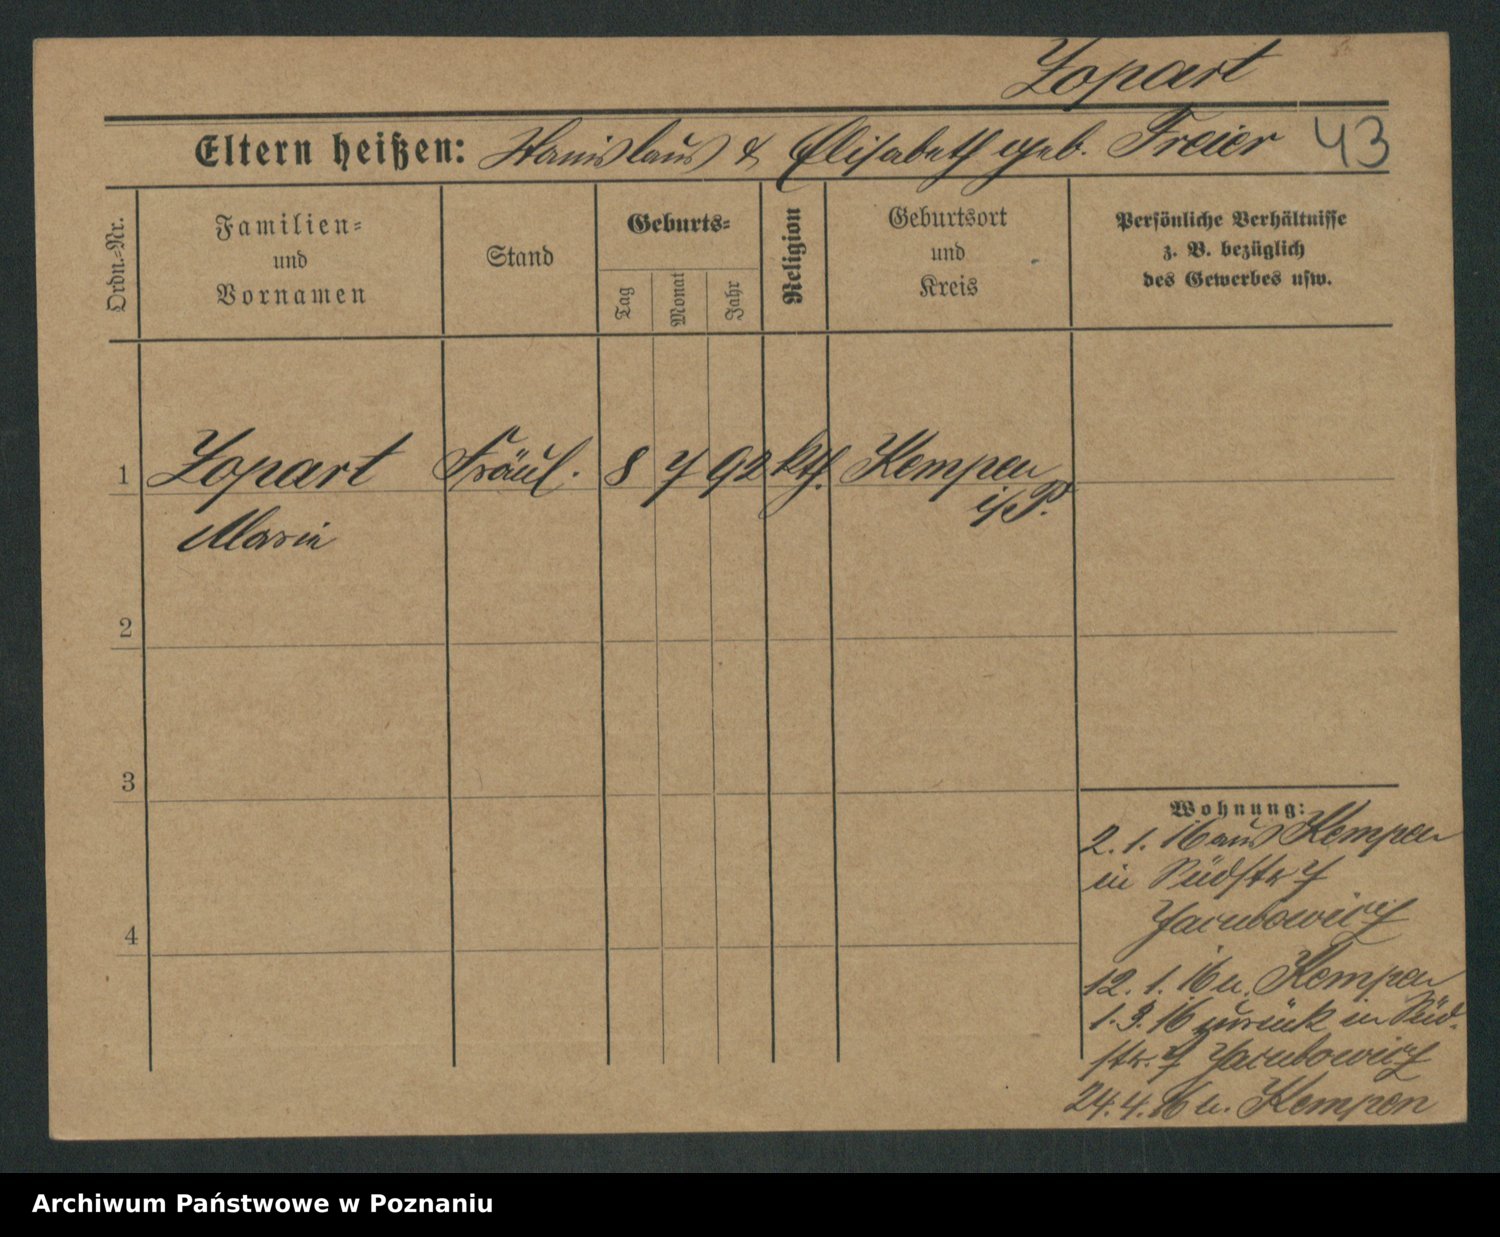 Lopart
Eltern heißen: Stanislaus & Elisabeth geb. Freier 43
Ordn.-Nr.
Familien-
und
Vornamen
Stand
Geburts-
Tag
Monat
Jahr
Religion
Geburtsort
und
Kreis
Persönliche Verhältnisse
z. B. bezüglich
des Gewerbes usw.
1 Lopart Fräul. 8 7 92 kth. Kempen
i/P.
Marie
2
3
4
Wohnung:
2. 1. 16 aus Kempen
in Südstr 7
12. 1. 16 n. Kempen
1. 3. 16 zurück in Süd-
str. 7
24. 4. 16 n. Kempen
Archiwum Państwowe w Poznaniu